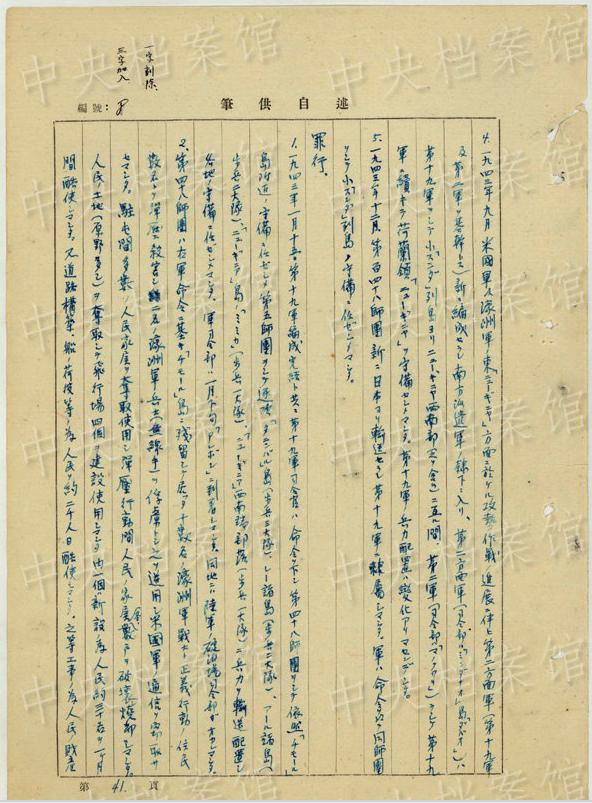 中央档案馆
述自供筆
編號: 8
一字削除
三字加入
4. 一九四三年九月米國軍及濠洲軍ノ東「ニューギニヤ」方面ニ於ケル攻勢作戦ノ進展ニ伴ヒ第二方面軍(第十九軍
及第二軍ヲ基幹トス)新ニ編成セラレ南方派遣軍ノ隷下ニ入リ、第二方面軍(司令部ハ「ミンダナオ」島「ダバオ」)ハ
第十九軍ヲシテ小「スンダ」列島ヨリニューギニヤ西南部ヲ含ムニ至ル間、第二軍(司令部「マノクワリ」)ヲシテ第十九
軍ニ續キテ荷蘭領「ニューギニヤ」ヲ守備セシメマシタ。第十九軍ノ兵力配置ハ變化アリマセンデシタ。
5. 一九四三年十二月第百四十八師團新ニ日本ヨリ輸送セラレ第十九軍ニ隷屬シマシタ。軍ハ命令ニヨリ同師團
ヲシテ小「スンダ」列島ノ守備ニ任ゼシメマシタ。
罪行、
1. 一九四三年一月十五日第十九軍編成完結ト共ニ第十九軍司令官ハ命令シテ第四十八師團ヲシテ依然「チモール」
島附近ノ守備ニ任ゼシメ第五師團ヲシテ逐次「タニンバル」島(步兵二大隊)、ケー諸島(步兵二大隊)、アール諸島(
步兵二大隊)「ニューギニヤ」島ノ「ミミカ」(步兵一大隊)、「ニューギニア」西南端部落(步兵一大隊)ニ兵力ヲ輸送配置シ
各地ノ守備ニ任ゼシメマシタ。軍司令部ハ一月下旬「アンボン」ニ到着シマシタ。同地ニハ陸軍ノ
2. 第四十八師團ハ右軍命令ニ基キ「チモール」島ニ殘留シテ居ッタ十數名ノ濠洲軍戰士ノ正義行動ト住民
數名ヲ彈壓シ殺害シ二名ノ濠洲軍兵士(無線手)ヲ俘虜シ之ヲ逆用シ米國軍ノ通信ヲ窃取サ
セマシタ。駐屯間多數ノ人民家屋ヲ奪取使用シ彈壓行動間人民ノ家屋數戶ヲ破壞燒却シマシタ。
人民ノ土地(原野多シ)ヲ奪取シテ飛行場四個ヲ建設使用シマシタ內一個ハ新設ノ爲人民約三千名ヲ一ヶ月
間酷使シマシタ。又道路構築、船ノ荷役等ノ爲人民ヲ約二千人日酷使シマシタ。之等工事ノ爲人民ノ財産
第 41. 頁